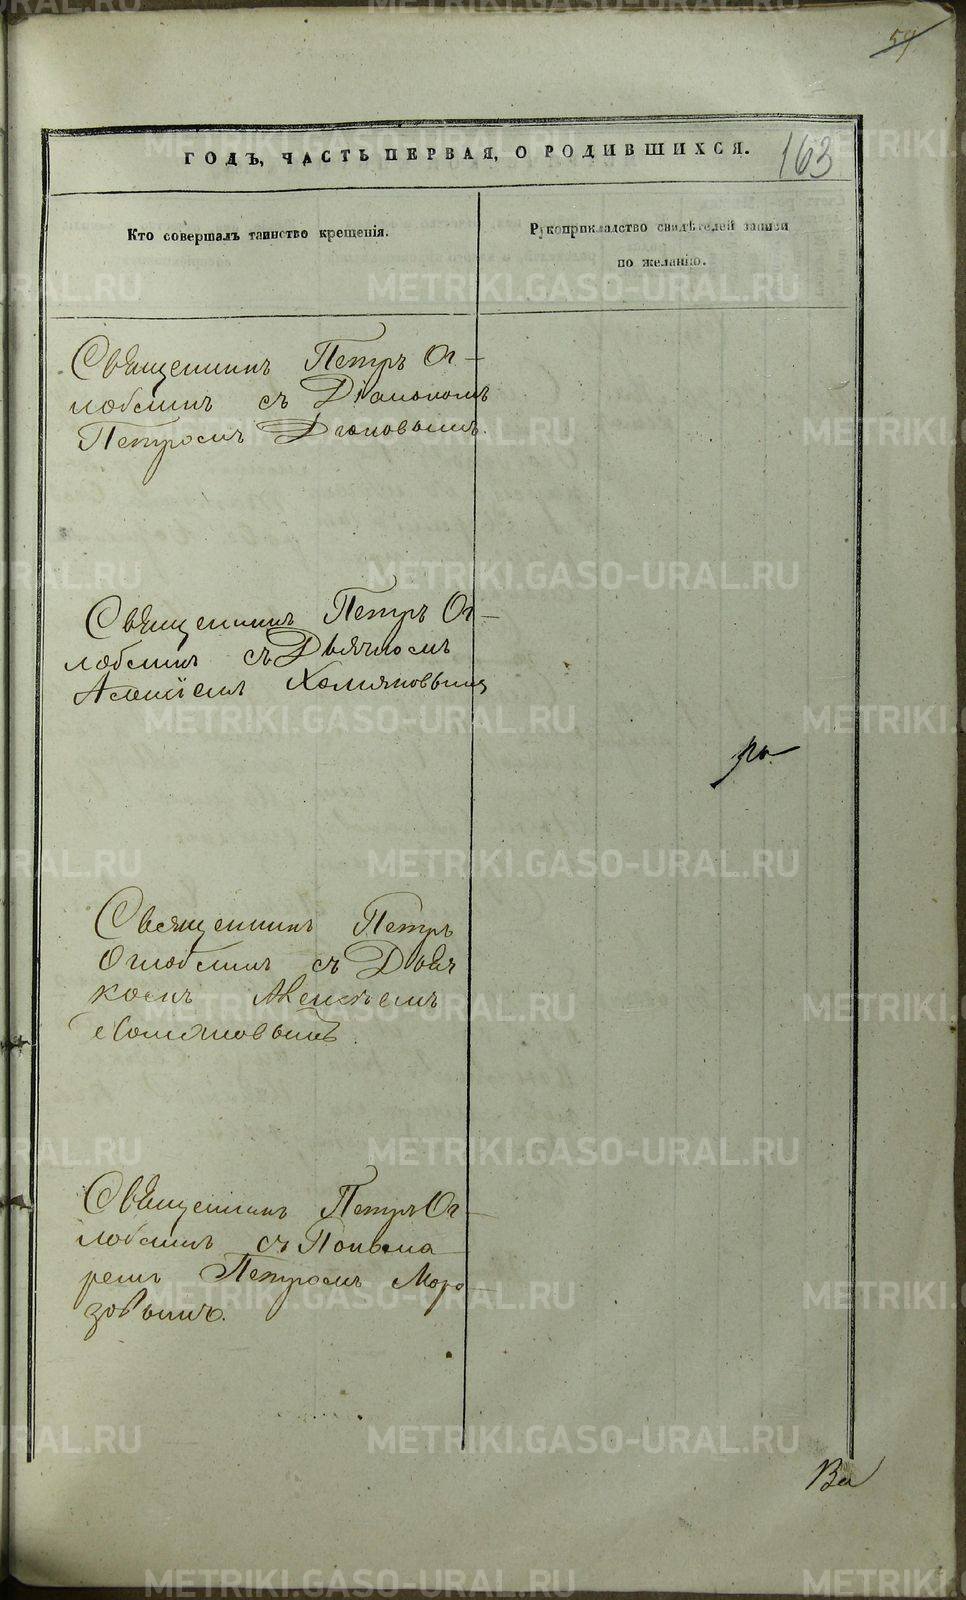 59
ГОДЪ, ЧАСТЬ ПЕРВАЯ, О РОДИВШИХСЯ.
163
Кто совершалъ таинство крещенія.
Рукоприкладство свидѣтелей записи
по желанію.
Священникъ Петръ Ог-
лоблинъ съ Діакономъ
Петромъ
Священникъ Петръ Ог-
лоблинъ съ Дьячкомъ
Алексіемъ Холмяковымъ
Священникъ Петръ
Оглоблинъ съ Дьяч
комъ Алексіемъ
Холмяковымъ
Священникъ Петръ Ог-
лоблинъ съ Поньма-
ремъ Петромъ Моро-
зовымъ.
METRIKI.GASO-URAL.RU